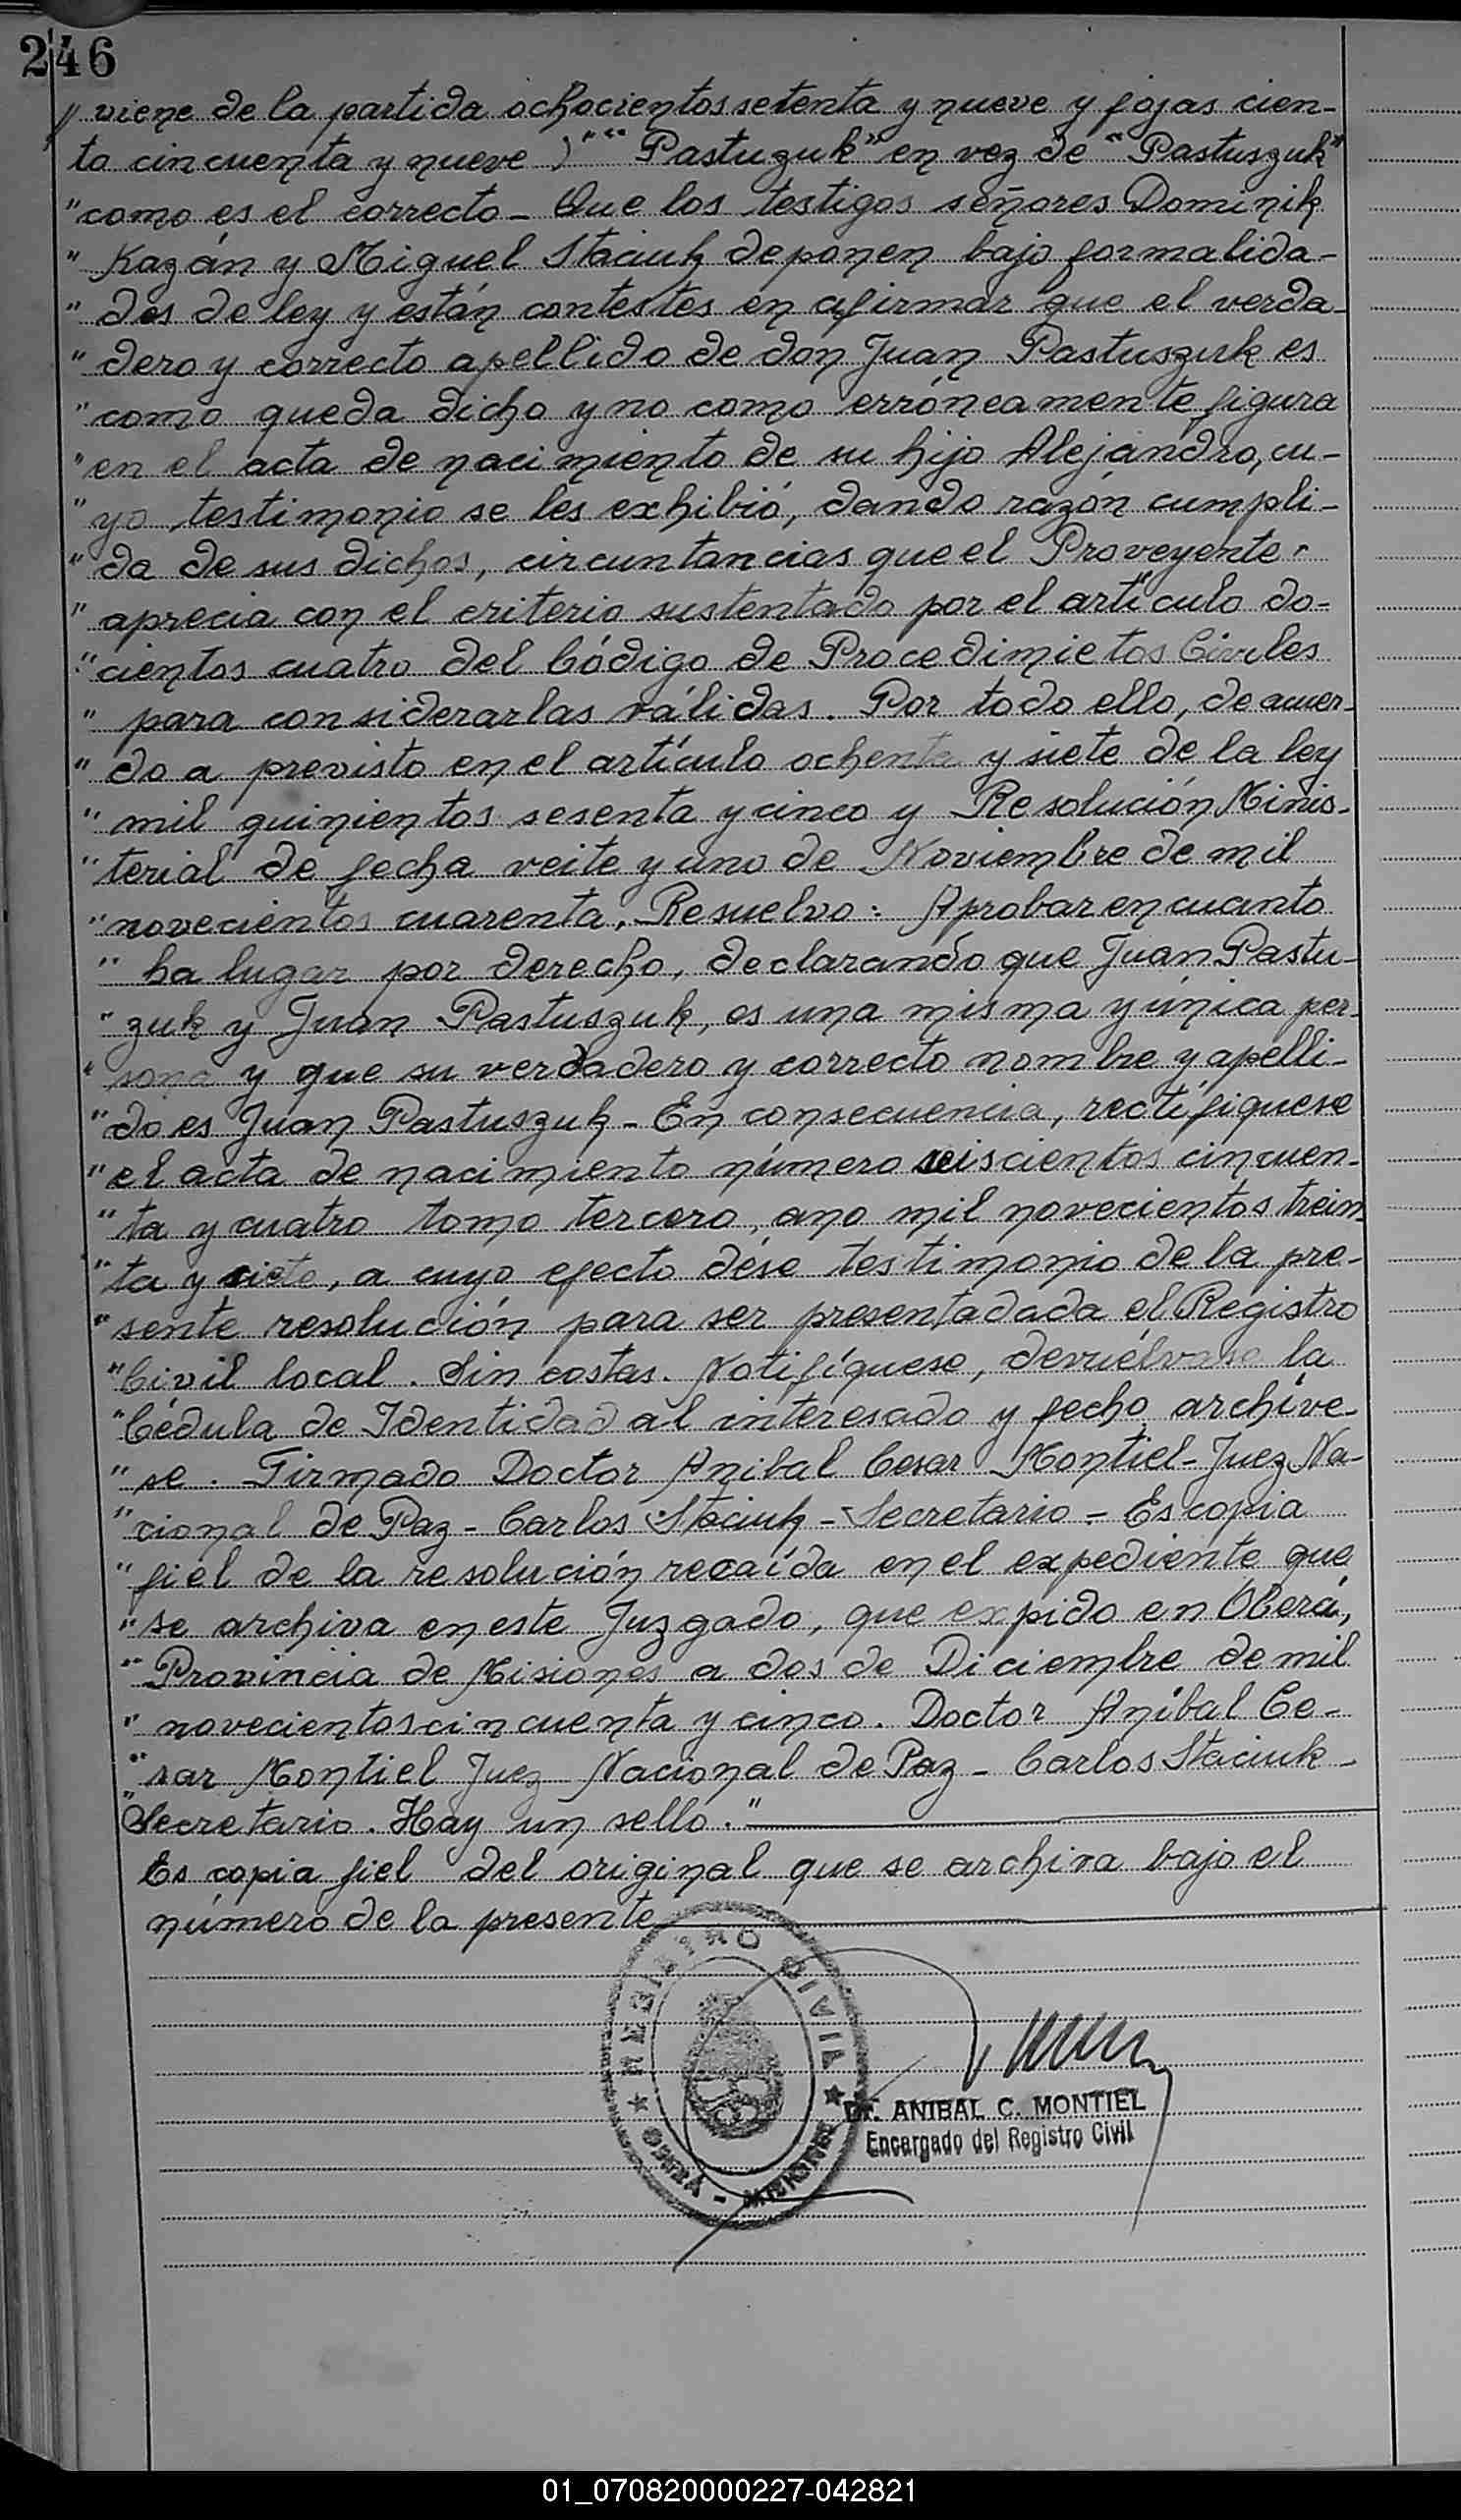 246
" viene de la partida ochocientos setenta y nueve y fojas cien-
to cincuenta y nueve ) " "Pastuzuk" en vez de "Pastuszuk"
"como es el correcto - Que los testigos señores Dominik
" Kazán y Miguel Staciuk deponen bajo formalida-
" des de ley y están contestes en afirmar que el verda-
" dero y correcto apellido de don Juan Pastuszuk es
" como queda dicho y no como erróneamente figura
" en el acta de nacimiento de su hijo Alejandro, cu-
" yo testimonio se les exhibió, dando razón cumpli-
" da de sus dichos, circuntancias que el Proveyente
" aprecia con el criterio sustentado por el artículo do-
" cientos cuatro del Código de Procedimietos Civiles
" para considerarlas válidas. Por todo ello, de acuer-
" do a previsto en el artículo ochenta y siete de la ley
" mil quinientos sesenta y cinco y Resolución Minis-
" terial de fecha veite y uno de Noviembre de mil
" novecientos cuarenta, Resuelvo: Aprobar en cuanto
" ha lugar por derecho, declarando que Juan Pastu-
" zuk y Juan Pastuszuk, es una misma y única per-
" sona y que su verdadero y correcto nombre y apelli-
" do es Juan Pastuszuk - En consecuencia, rectifíquese
" el acta de nacimiento número seiscientos cincuen-
" ta y cuatro tomo tercero, ano mil novecientos trein-
" ta y siete, a cuyo efecto dése testimonio de la pre-
" sente resolución para ser presentadada el Registro
" Civil local. Sin costas. Notifíquese, devuélvase la
" Cédula de Identidad al interesado y fecho archíve-
" se. Firmado Doctor Anibal Cesar Montiel - Juez Na-
" cional de Paz - Carlos Staciuk - Secretario - Es copia
" fiel de la resolución recaída en el expediente que
" se archiva en este Juzgado, que expido en Oberá,
" Provincia de Misiones a dos de Diciembre de mil
" novecientos cincuenta y cinco. Doctor Aníbal Ce-
" sar Montiel Juez Nacional de Paz - Carlos Staciuk -
" Secretario. Hay un sello."
Es copia fiel del original que se archiva bajo el
número de la presente
REGISTRO CIVIL
OBERÁ - MISIONES
Dr. ANIBAL C. MONTIEL
Encargado del Registro Civil
01_070820000227-042821